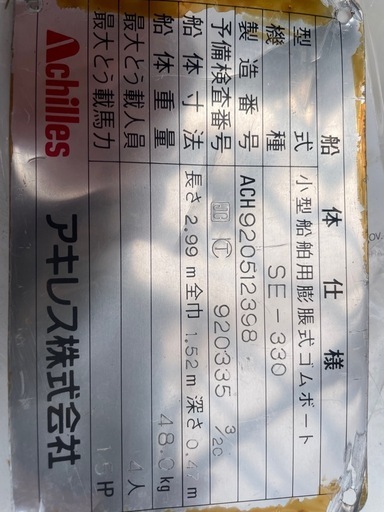 船体仕様
型式 小型船舶用膨脹式ゴムボート
機種 SE-330
製造番号 ACH920512398
予備検査番号 920335 3/20
船体寸法 長さ 2.99m 全巾 1.52m 深さ 0.47m
船体重量 48.0kg
最大とう載人員 4人
最大とう載馬力 15HP
Achilles アキレス株式会社